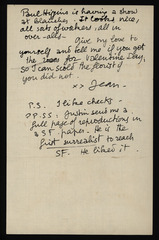 Paul Higgins is having a show
at Blanches. It looks nice,
all sorts of watchers, all in
over-alls—
Give my love to
yourself and tell me if you got
the for Valentine Day,
so I can scold the florist if
you did not.
xx Jean—
P.S. I like checks—
P.P.S.S. Justin sent me a
full page of reproductions in
a S.F. paper. He is the
first surrealist to reach
SF. He likes it.